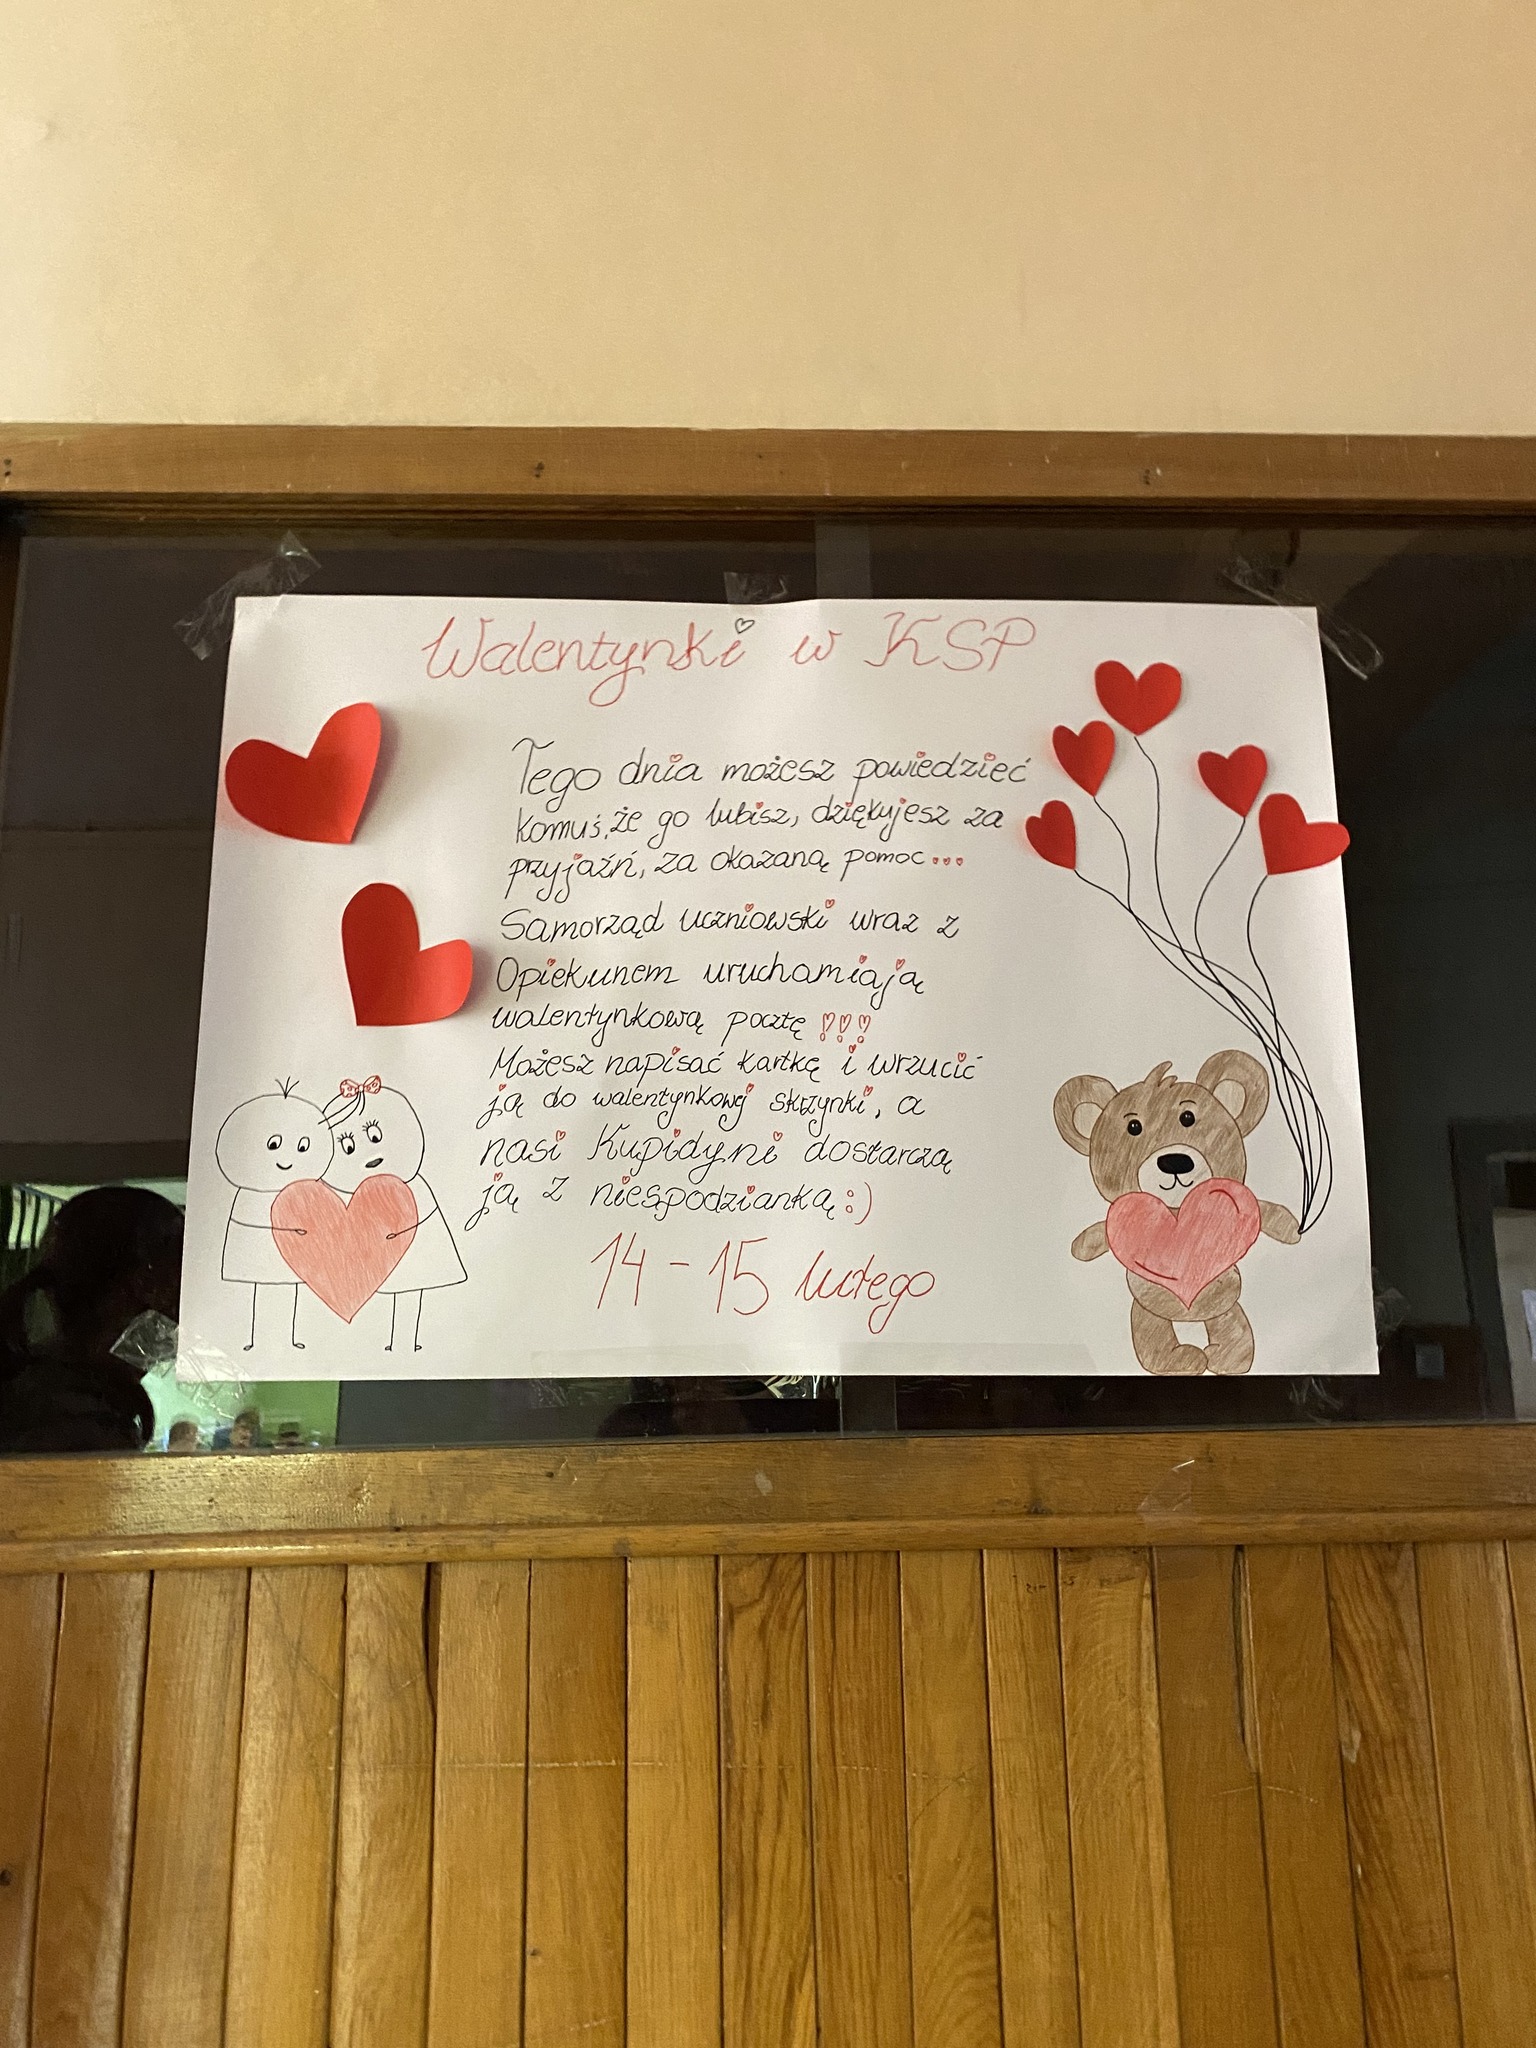 Walentynki w KSP
Tego dnia możesz powiedzieć
komuś, że go lubisz, dziękujesz za
przyjaźń, za okazaną pomoc...
Samorząd Uczniowski wraz z
Opiekunem uruchamiają
walentynkową pocztę !!!
Możesz napisać kartkę i wrzucić
ją do walentynkowej skrzynki, a
nasi Kupidyni dostarczą
ją z niespodzianką :)
14-15 lutego